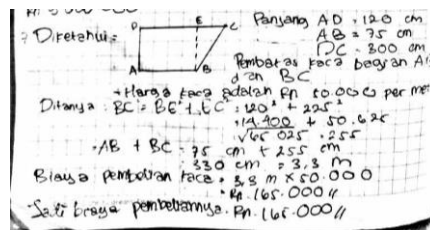 Diketahui =
D E C
A B
Panjang AD = 120 cm
AB = 75 cm
DC = 300 cm
Pembatas kaca bagian A
dan BC
Harga kaca adalah Rp 50.000 per me
Ditanya = BC² = BE² + EC² = 120² + 225²
= 14.400 + 50.625
√65 025 = 255
AB + BC = 75 cm + 255 cm
= 330 cm = 3,3 m
Biaya pembelian kaca = 3,3 m x 50.000
= Rp. 165.000 //
Jadi biaya pembeliannya. Rp. 165.000 //